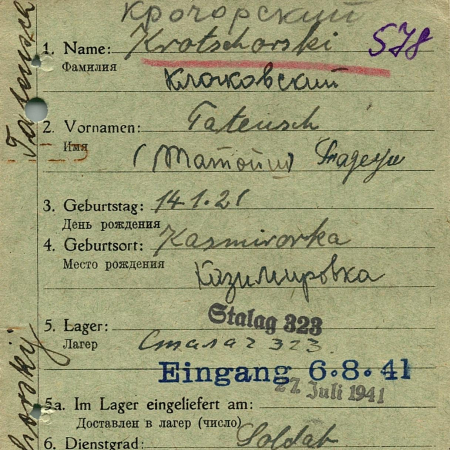 Крочорский
1. Name: Krotschorski 578
Фамилия
Клоковский
2. Vornamen: Tateusch
Имя
Фадеуш
3. Geburtstag: 14.1.21
День рождения
4. Geburtsort: Kasmirovka
Место рождения
Казимировка
Stalag 323
5. Lager:
Лагер Сталаг 323
Eingang 6.8.41
27. Juli 1941
5a. Im Lager eingeliefert am:
Доставлен в лагер (число)
6. Dienstgrad: Soldat
Tateusch